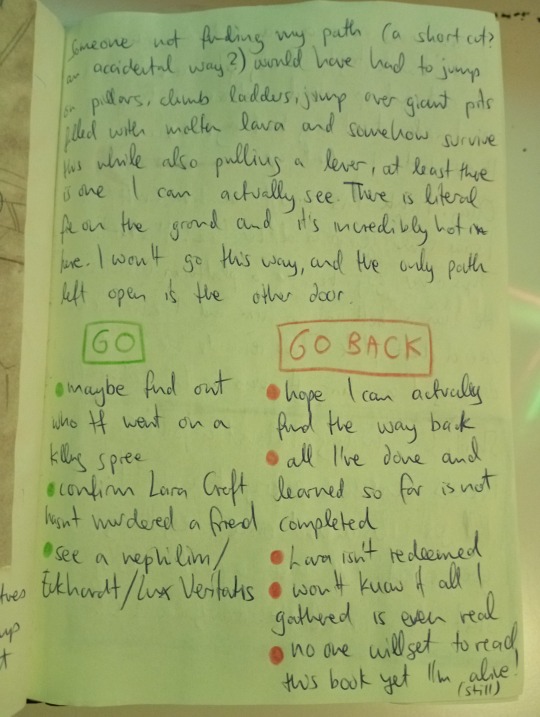 Someone not finding my path (a short cut?
an accidental way?) would have had to jump
on pillars, climb ladders, jump over giant pits
filled with molten lava and somehow survive
this while also pulling a lever, at least there
is one I can actually see. There is literal
fire on the ground and it's incredibly hot in
here. I won't go this way, and the only path
left open is the other door.
GO
• maybe find out
who tf went on a
killing spree
• confirm Lara Croft
hasn't murdered a friend
• see a nephilim/
Eckhardt/Lux Veritatis
GO BACK
• hope I can actually
find the way back
• all I've done and
learned so far is not
completed
• Lara isn't redeemed
• won't know if all I
gathered is even real
• no one will get to read
this book yet I'm alive!
(still)
up